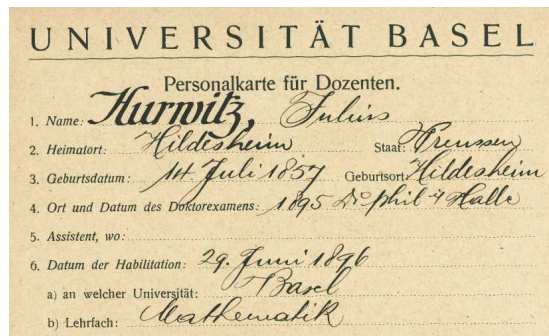 UNIVERSITÄT BASEL
Personalkarte für Dozenten.
1. Name: Hurwitz, Julius
2. Heimatort: Hildesheim Staat: Preussen
3. Geburtsdatum: 14. Juli 1857 Geburtsort Hildesheim
4. Ort und Datum des Doktorexamens: 1895 Dr phil Halle
5. Assistent, wo:
6. Datum der Habilitation: 29. Juni 1896
a) an welcher Universität: Basel
b) Lehrfach: Mathematik